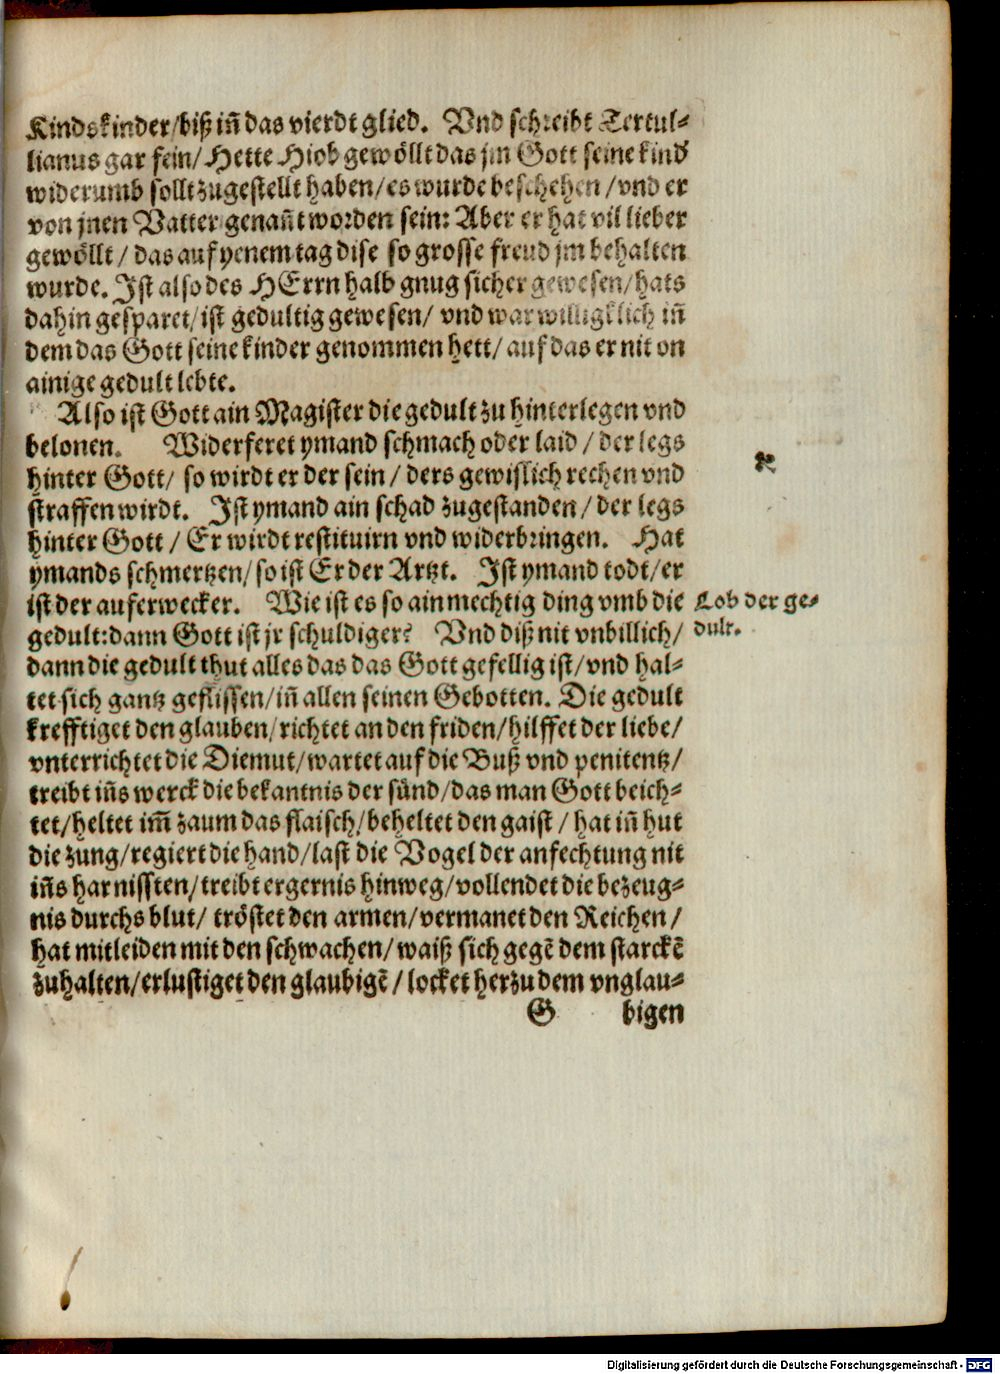 Kindskinder/biß iñ das vierdt glied. Vnd schreibt Tertul-
lianus gar fein/ Hette Hiob gewöllt das jm Gott seine kind
widerumb sollt zugestellt haben/ es wurde beschehen /vnd er
von jnen Vatter genañt worden sein: Aber er hat vil lieber
gewöllt / das auf yenem tag dise so grosse freud jm behalten
wurde. Ist also des HErrn halb gnug sicher gewesen/ hats
dahin gesparet/ ist gedultig gewesen/ vnd war willigklich iñ
dem das Gott seine kinder genommen hett/ auf das er nit on
ainige gedult lebte.
Also ist Gott ain Magister die gedult zu hinterlegen vnd
belonen. Widerferet ymand schmach oder laid / der legs
hinter Gott/ so wirdt er der sein / ders gewislich rechen vnd
straffen wirdt. Ist ymand ain schad zugestanden / der legs
hinter Gott / Er wirdt restituirn vnd widerbringen. Hat
ymands schmertzen/ so ist Er der Artzt. Ist ymand todt/ er
ist der auferwecker. Wie ist es so ain mechtig ding vmb die
gedult: dann Gott ist jr schuldiger? Vnd diß nit vnbillich/
dann die gedult thut alles das das Gott gefellig ist/ vnd hal-
tet sich gantz geflissen/ iñ allen seinen Gebotten. Die gedult
krefftiget den glauben/ richtet an den friden/ hilffet der liebe/
vnterrichtet die Diemut/ wartet auf die Buß vnd penitentz/
treibt iñs werck die bekantnis der sünd/ das man Gott beich-
tet/ heltet im̃ zaum das flaisch/ beheltet den gaist / hat iñ hut
die zung/ regiert die hand/ last die Vogel der anfechtung nit
iñs har nissten/ treibt ergernis hinweg/ vollendet die bezeug-
nis durchs blut/ tröstet den armen/ vermanet den Reichen /
hat mitleiden mit den schwachen/ waiß sich gegē dem starckē
zuhalten/ erlustiget den glaubigē / locket herzu dem vnglau-
G bigen
Lob der ge-
dult.
Digitalisierung gefördert durch die Deutsche Forschungsgemeinschaft - DFG